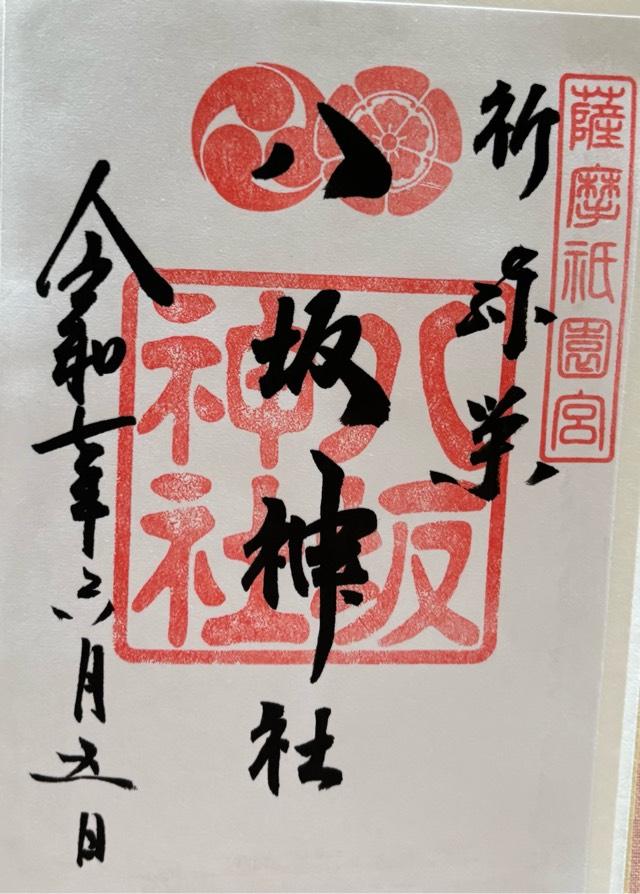 薩摩祇園宮
祈弥栄
八坂神社
八坂
神社
令和七年六月五日